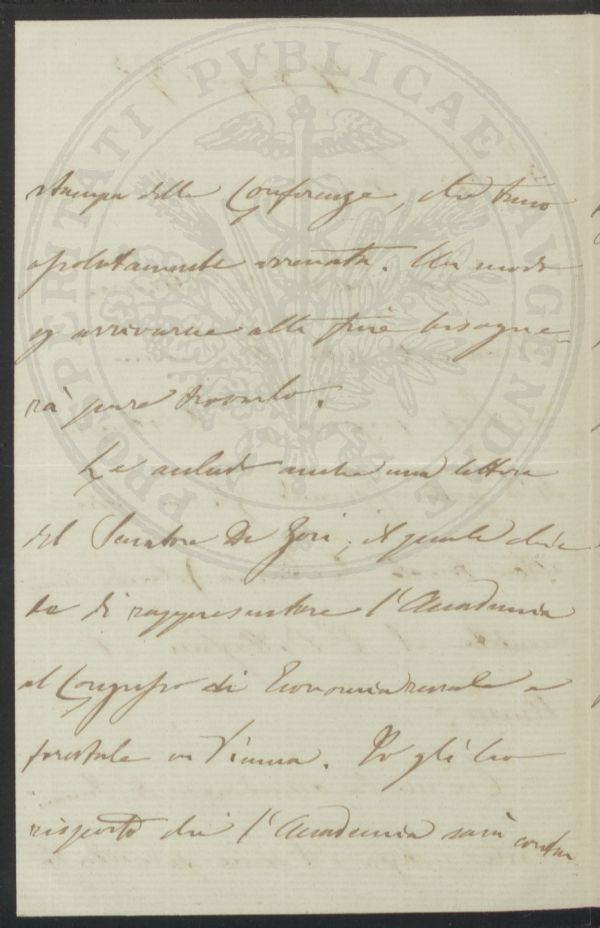 PROSPERITATI PVBLICAE AVGENDAE
stampa delle Conferenze, che trovo
assolutamente arenata. Un modo
di arrivarne alla fine bisogne-
rà pure trovarlo.
Le accludo anche una lettera
del Senatore De Gori, il quale chie
de di rappresentare l'Accademia
al Congresso di Economia rurale e
forestale in Vienna. Io gli ho
risposto che l'Accademia sarà conten